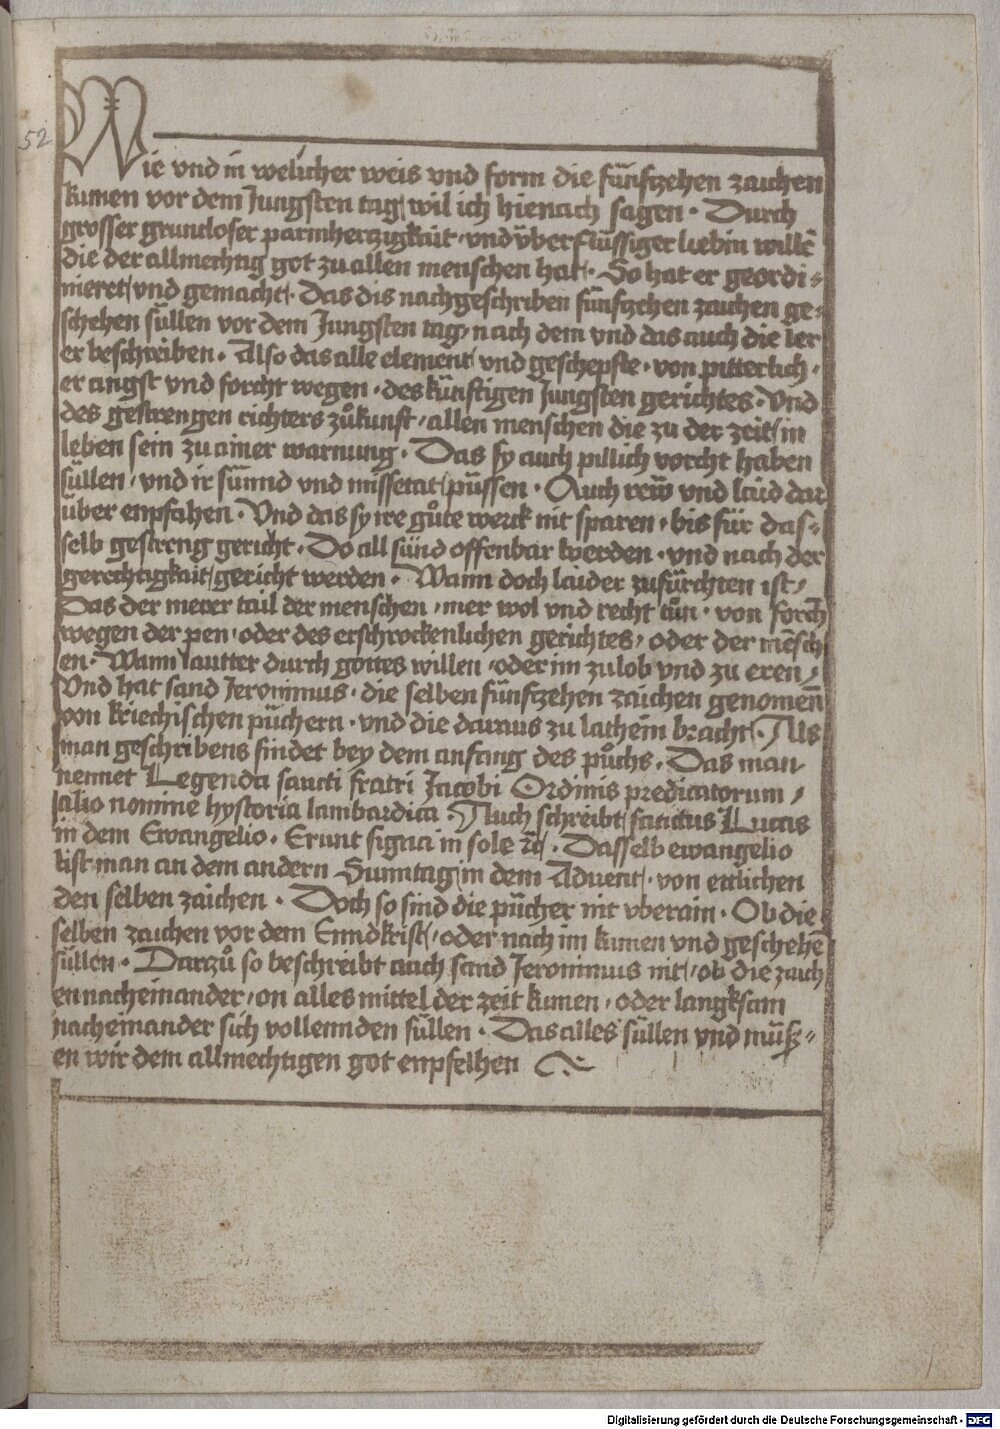 52
Wie vnd in welicher weis vnd form die fünfzehen zaichen
kumen vor dem Jungsten tag wil ich hienach sagen · Durch
grosser grundloser parmhertzigkait / vnd überflüssiger liebin willē
die der allmechtig got zu allen menschen hat · So hat er geordi=
nieret vnd gemacht · Das dis nachgeschriben fünfzehen zaichen ge=
schehen süllen vor dem Jungsten tag / nach dem vnd das auch die ler
er beschreiben · Also das alle element vnd geschepfte · von pitterlich ·
er angst vnd forcht wegen · des künftigen Jungsten gerichtes · Vnd
des gestrengen richters zůkunft / allen menschen die zu der zeit in
leben sein zu ainer warnung · Das sy auch pillich vorcht haben
süllen / vnd ir sünnd vnd missetat püssen · Auch rew vnd laid dar
über enpfahen · Vnd das sy ire gůte werck nit sparen · bis für das=
selb gestreng gericht · Do all sünd offenbar werden · vnd nach der
gerechtigkait gericht werden · Wann doch laider zufürchten ist /
Das der merer tail der menschen / mer wol vnd recht tůn · von forch
wegen der pen / oder des erschrockenlichen gerichtes / oder der mēsch
en · Wann lautter durch gottes willen / oder im zu lob vnd zu eren /
Vnd hat sand Jeronimus · die selben fünfzehen zaichen genomen̄
von kriechischen püchern · vnd die daraus zu lathein bracht · Als
man geschribens findet bey dem anfang des půchs · Das man
nennet Legenda sancti fratri Jacobi Ordinis predicatorum /
alio nomine hystoria lambardica · Auch schreibt sanctus Lucas
in dem Ewangelio · Erunt signa in sole ⁊c̄ · Dasselb ewangelio
list man an dem andern Sunntag in dem Advent · von ettlichen
den selben zaichen · Doch so sind die pücher nit vberain · Ob die
selben zaichen vor dem Enndkrist / oder nach im kumen vnd geschehē
süllen · Darzů so beschreibt auch sand Jeronimus nit / ob die zaich
en nacheinander / on alles mittel der zeit kumen / oder langksam
nacheinander sich vollennden süllen · Das alles süllen vnd müß=
en wir dem allmechtigen got enpfelhen
Digitalisierung gefördert durch die Deutsche Forschungsgemeinschaft - DFG